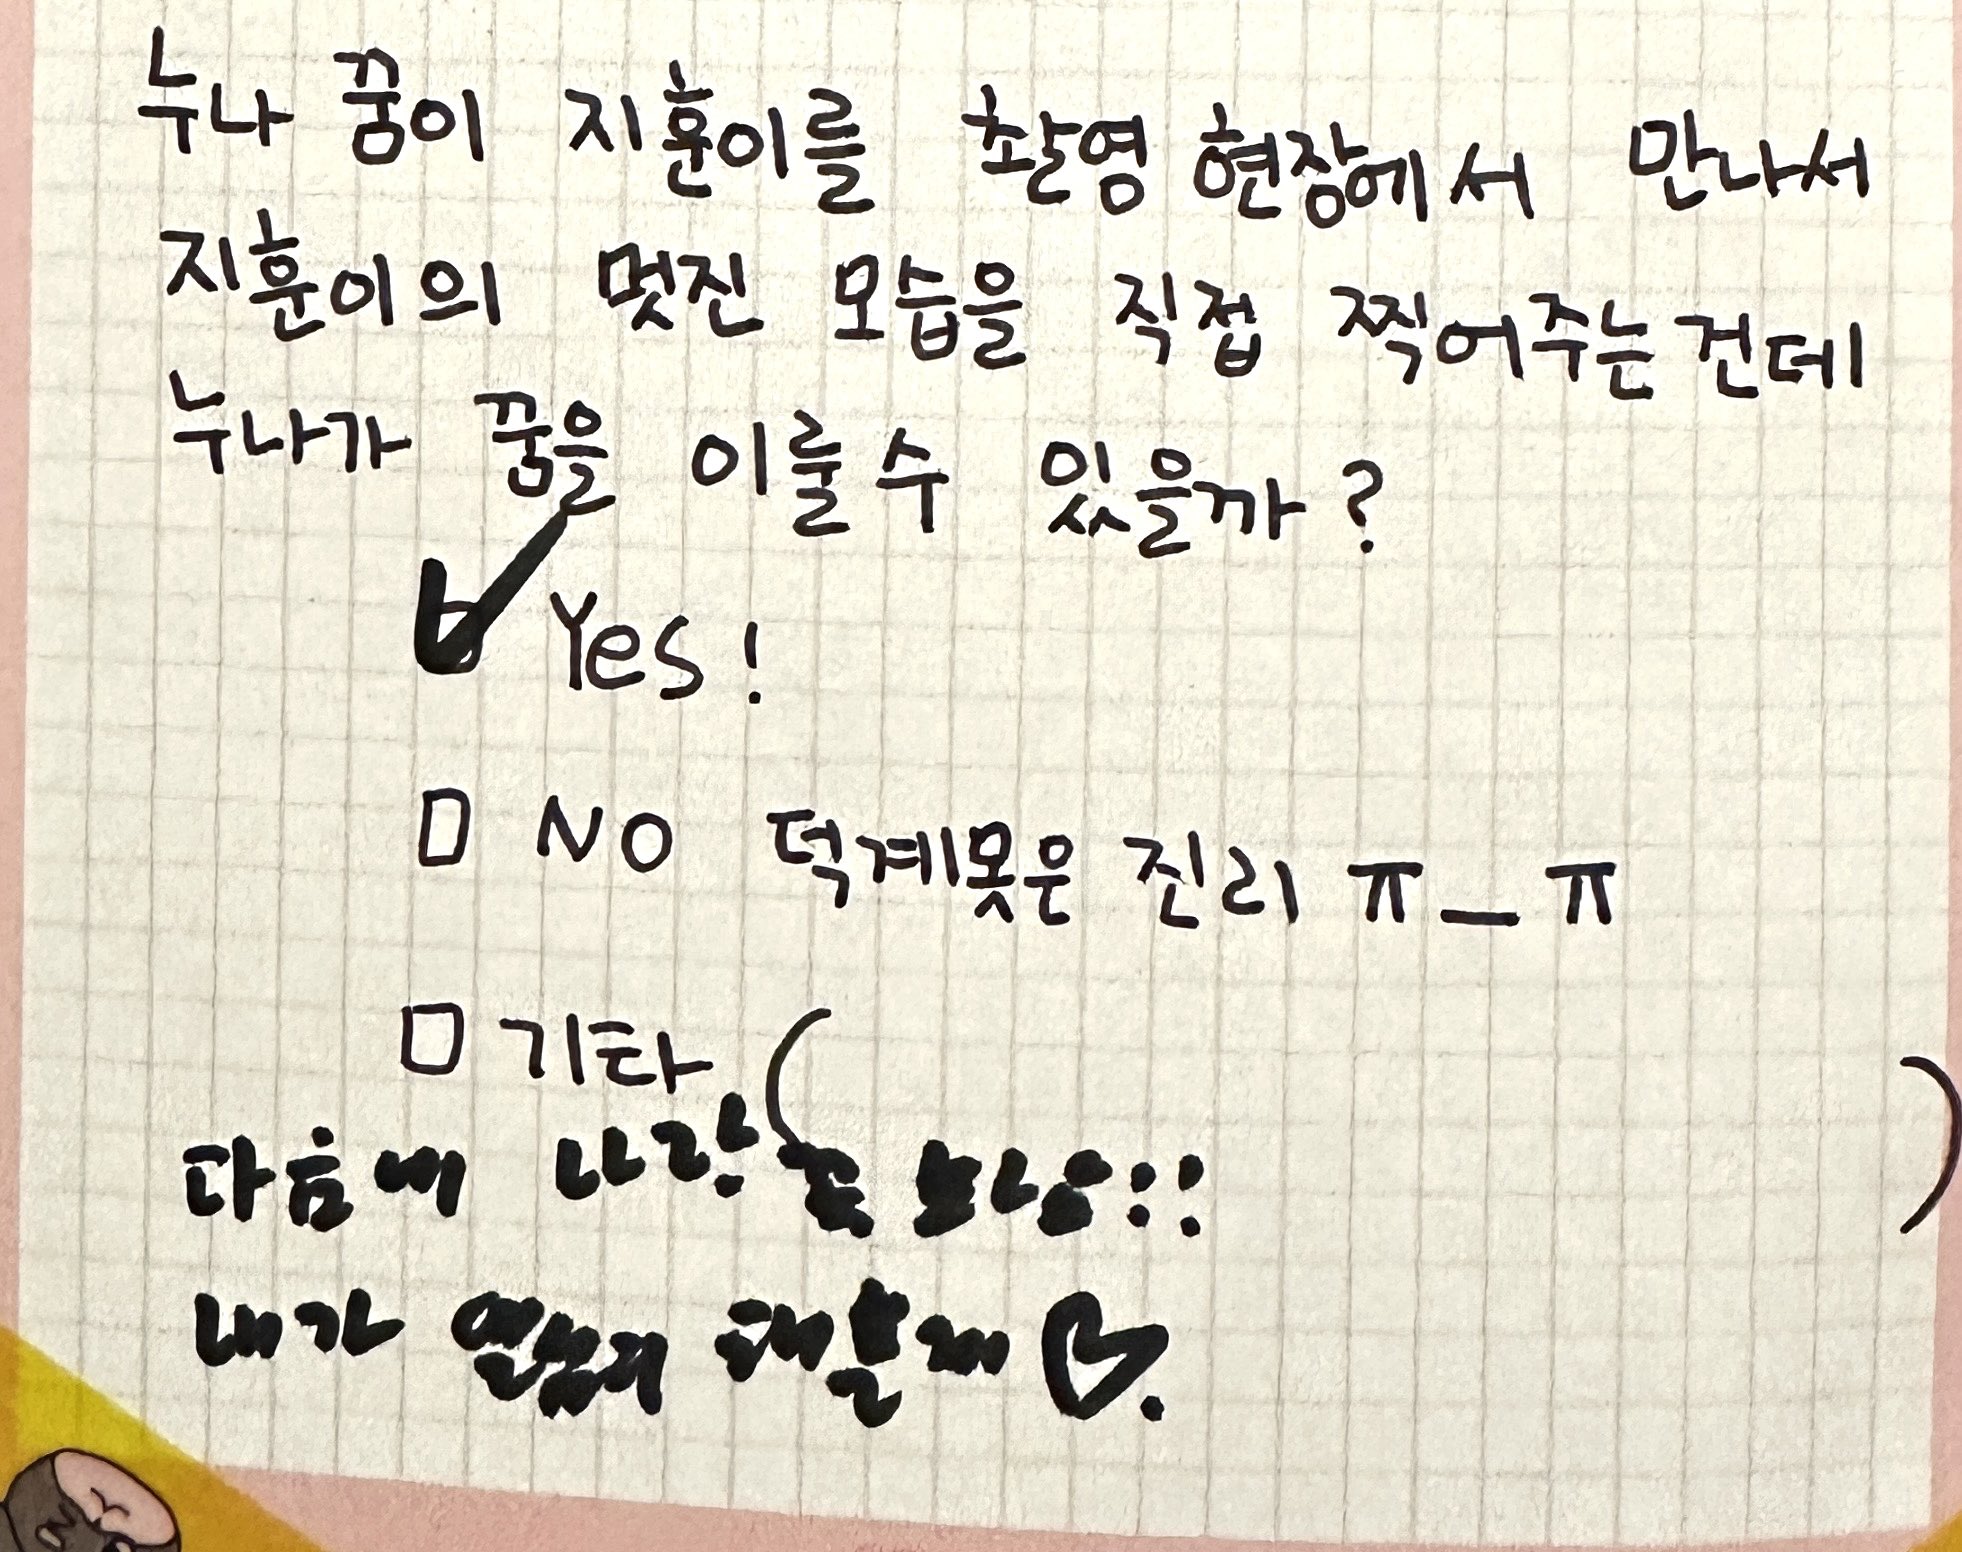 누나 꿈이 지훈이를 촬영 현장에서 만나서
지훈이의 멋진 모습을 직접 찍어주는건데
누나가 꿈을 이룰수 있을까?
Yes!
□ NO 덕계못은 진리 ㅠ_ㅠ
□ 기타 ( )
다음에 나랑 꼭 보아!!
내가 연습 해올게 ♡.